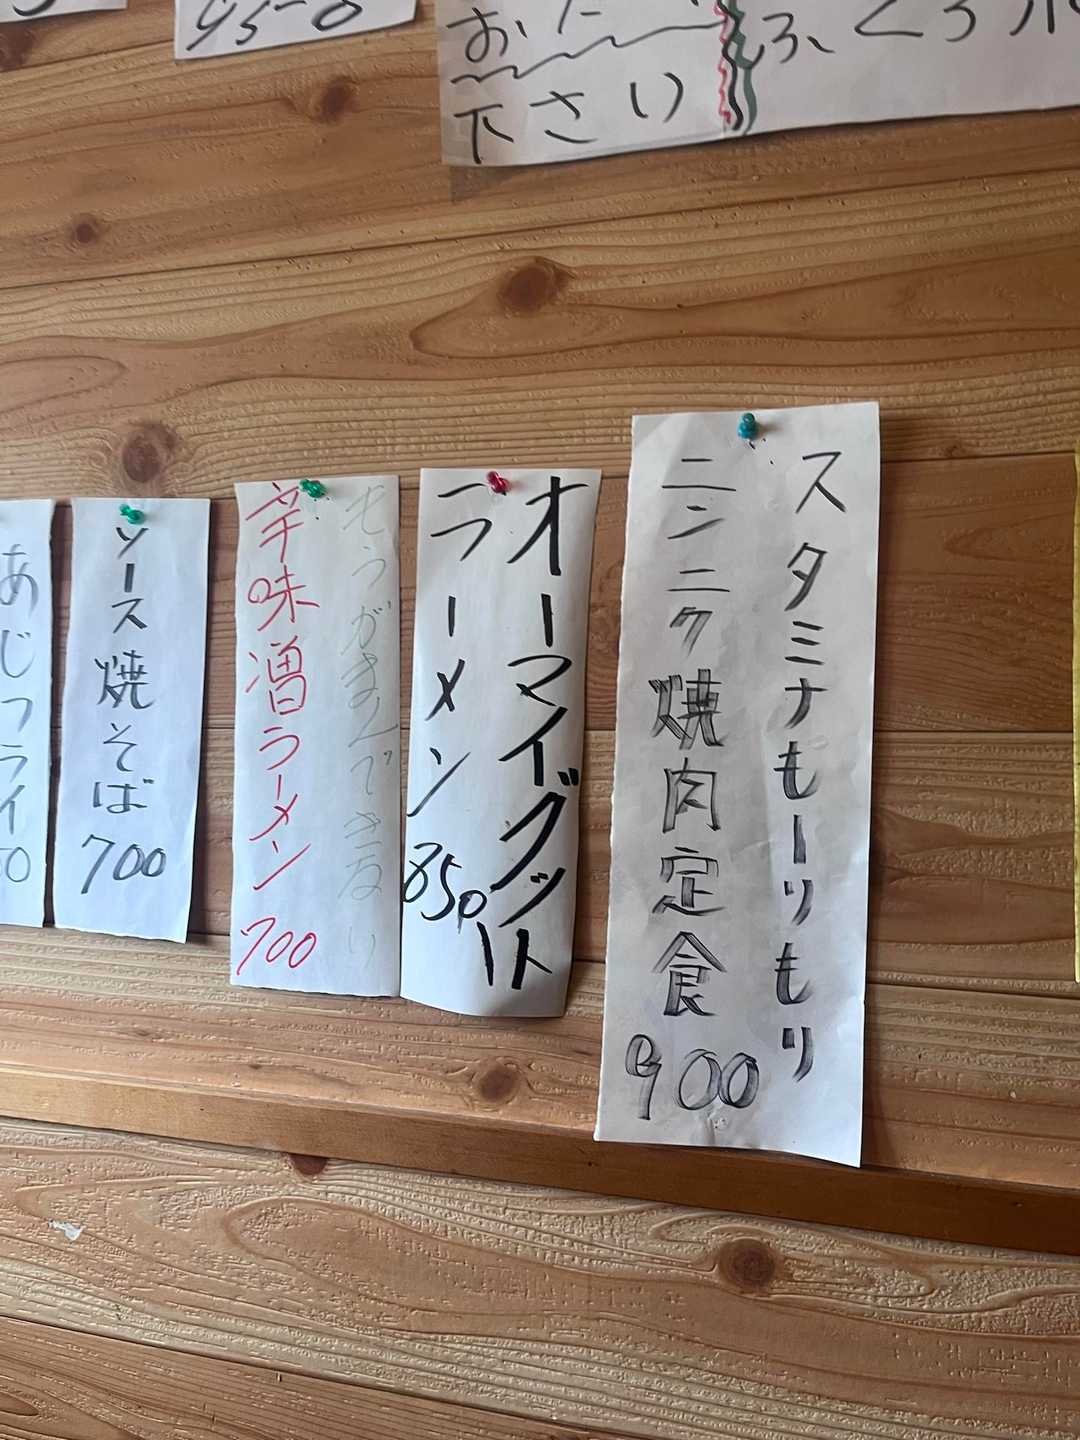 下さい
スタミナもーりもり
ニンニク焼肉定食
900
オーマイグット
ラーメン
850
もうがまんできない
辛味噌ラーメン
700
ソース焼そば
700
あじフライ